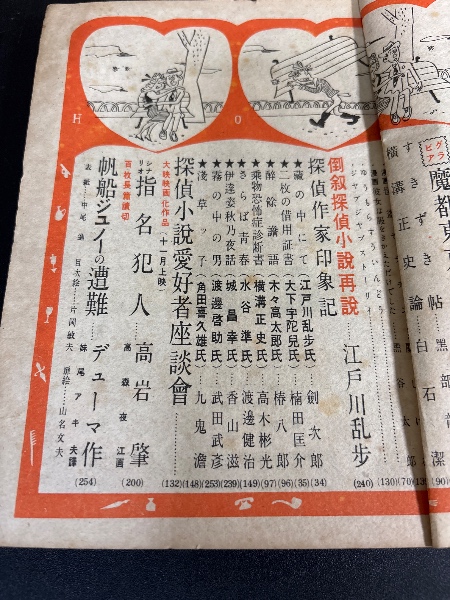 H
O
グラビア
魔都東京
すきずき帖……黒部龍
横溝正史論……白石潔
倒叙探偵小說再說……江戸川乱歩(240)
探偵作家印象記
★藏の中にて(江戸川乱歩氏)……劍次郎(34)
★二枚の借用証書(大下宇陀兒氏)……楠田匡介(35)
★醉餘論語(木々高太郎氏)……椿八郎(96)
★乗物恐怖症診断書(横溝正史氏)……高木彬光(97)
★さらば青春(水谷準氏)……渡邊健治(149)
★伊達姿秋乃夜話(城昌幸氏)……香山滋(239)
★霧の中の男(渡邊啓助氏)……武田武彦(253)
★淺草ッ子(角田喜久雄氏)……九鬼澹(148)
探偵小說愛好者座談會……(132)
大映映画化作品(十一月上映)
シナリオ
指名犯人……高岩肇(200)
高森夜江画
百枚長篇讀切
帆船ジュノーの遭難……デューマ作(254)
妹尾アキ夫譯
表紙……中尾進 目次絵……片岡敏夫 扉絵……山名文夫